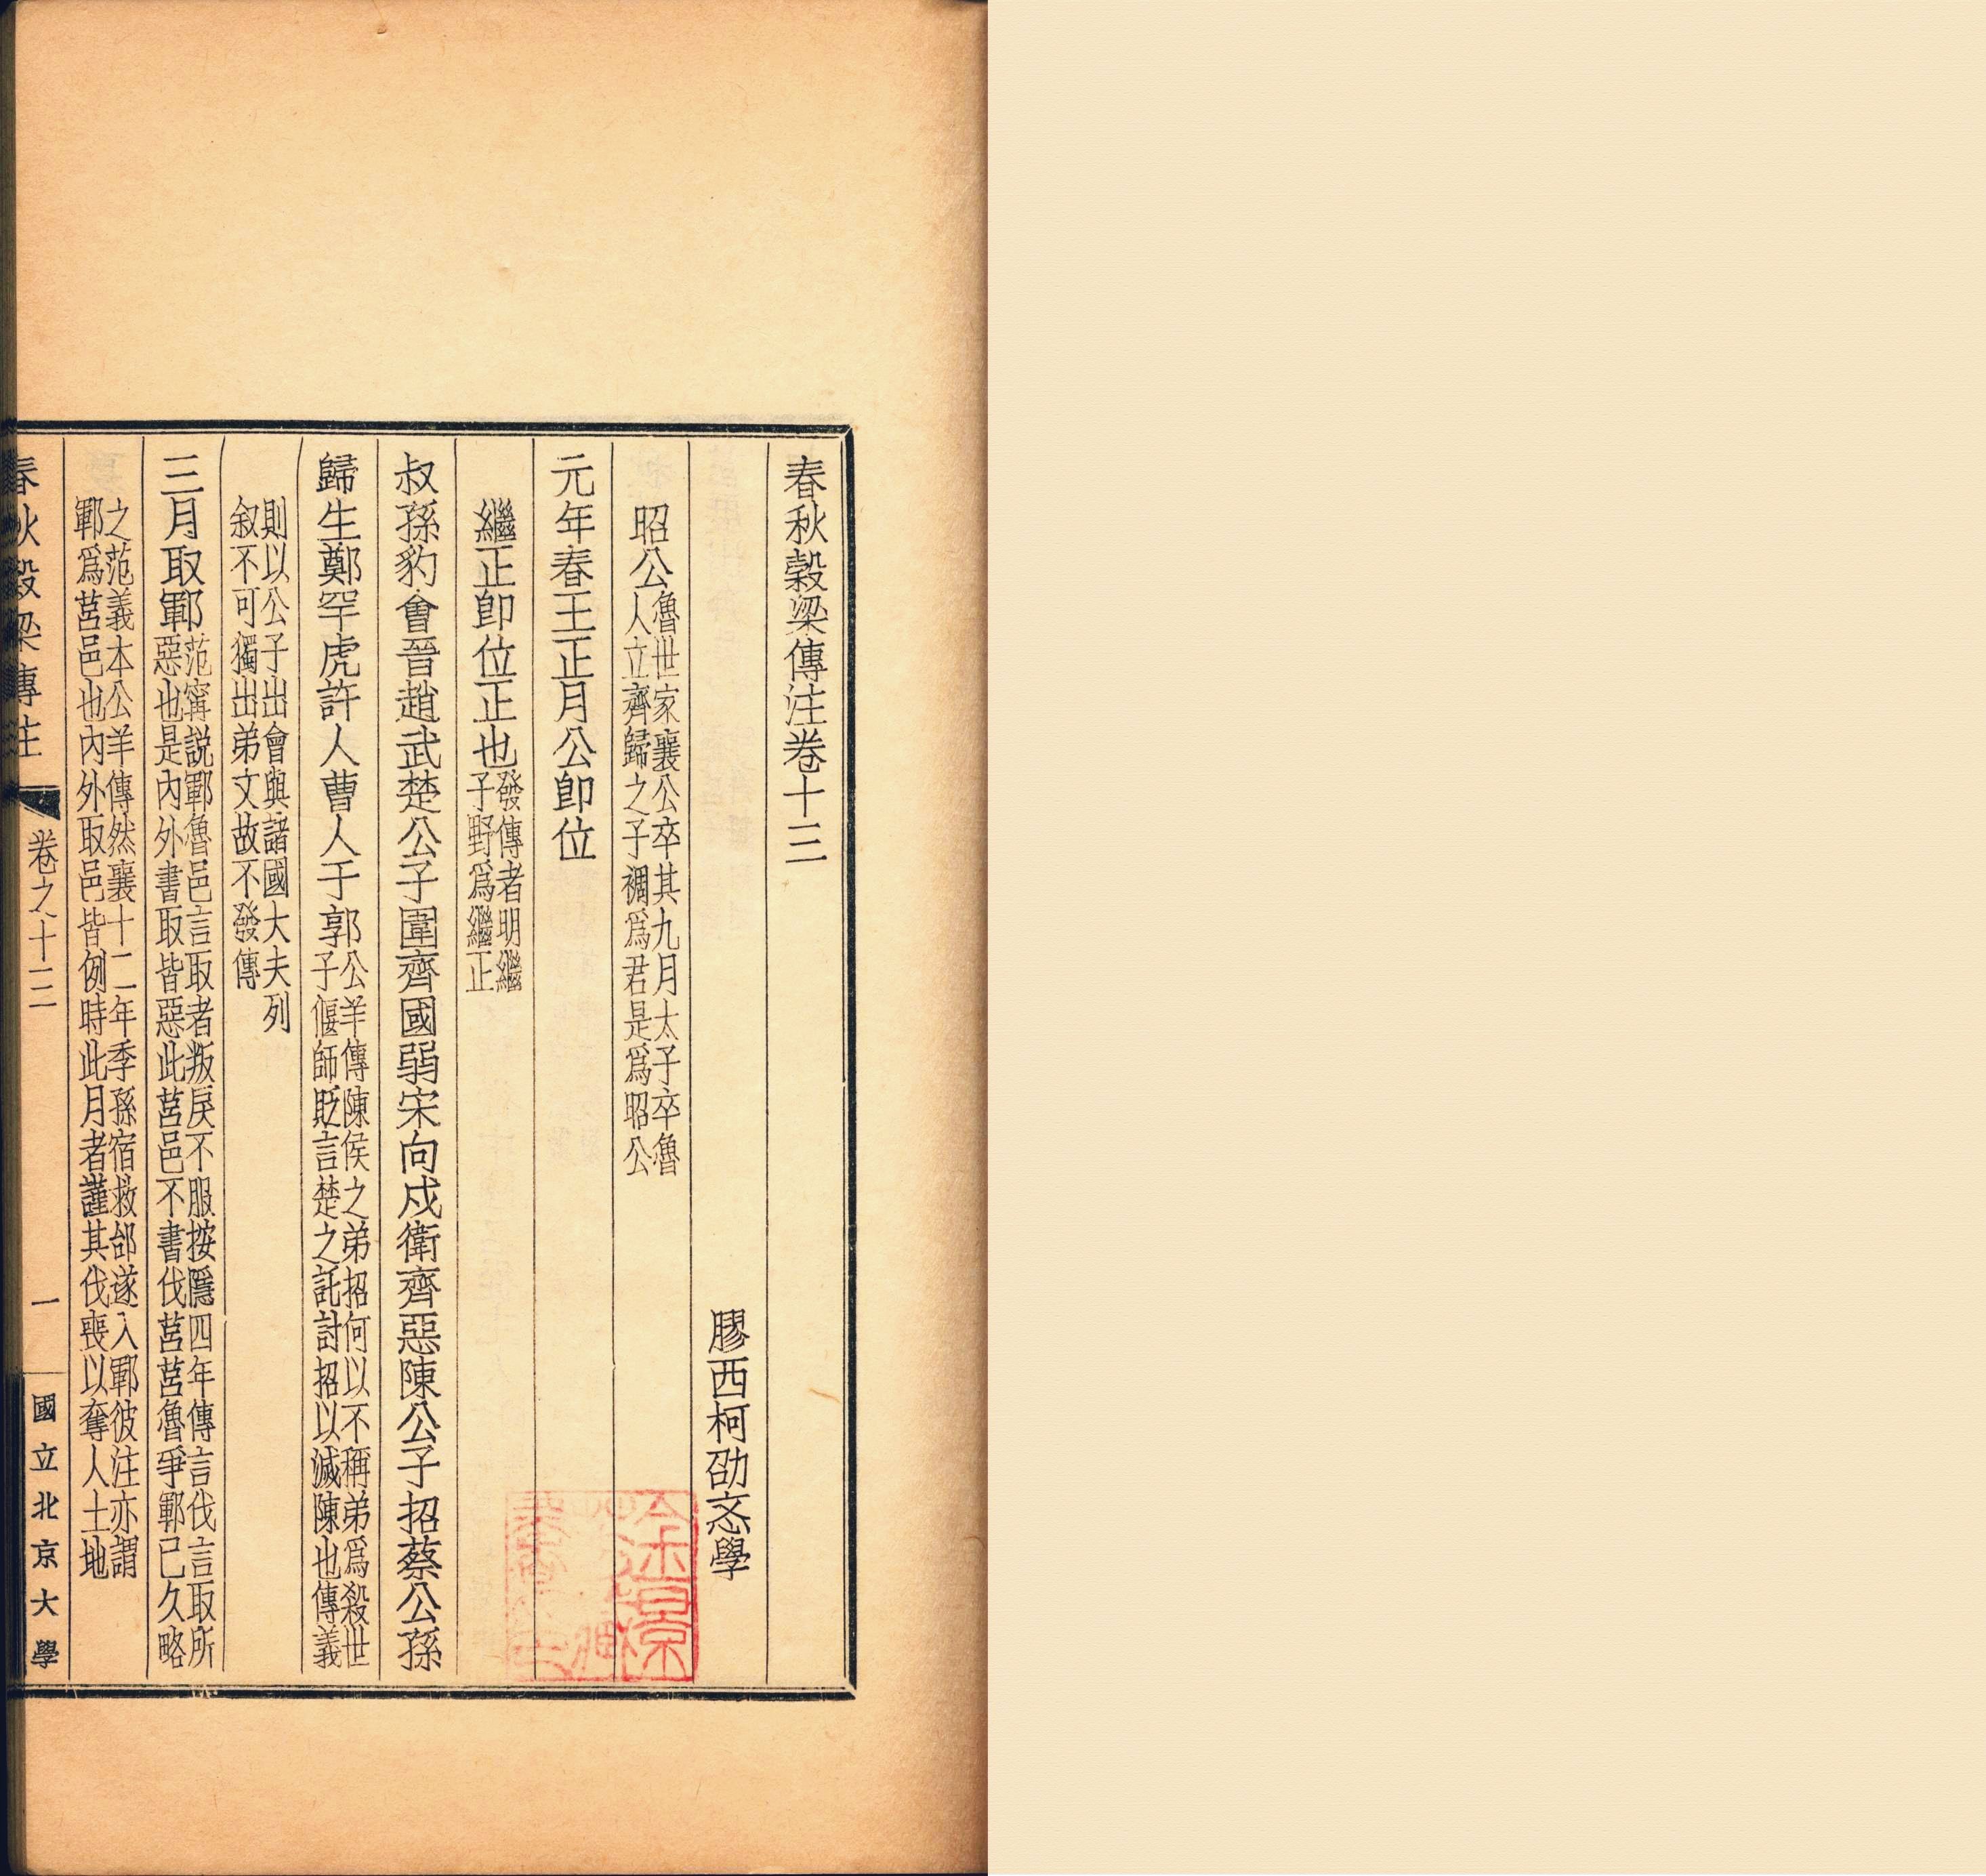 春秋穀梁傳注卷十三
膠西柯劭忞學
昭公魯世家襄公卒其九月太子卒魯
人立齊歸之子裯爲君是爲昭公
元年春王正月公卽位
繼正卽位正也發傳者明繼
子野爲繼正
叔孫豹會晉趙武楚公子圍齊國弱宋向戍衛齊惡陳公子招蔡公孫
歸生鄭罕虎許人曹人于郭公羊傳陳侯之弟招何以不稱弟爲殺世
子偃師貶言楚之託討招以滅陳也傳義
則以公子出會與諸國大夫列
叙不可獨出弟文故不發傳
三月取鄆范甯説鄆魯邑言取者叛戾不服按隱四年傳言伐言取所
惡也是內外書取皆惡此莒邑不書伐莒莒魯爭鄆已久略
之范義本公羊傳然襄十二年季孫宿救邰遂入鄆彼注亦謂
鄆爲莒邑也內外取邑皆例時此月者謹其伐喪以奪人土地
春秋穀梁傳注
卷之十三
一
國立北京大學